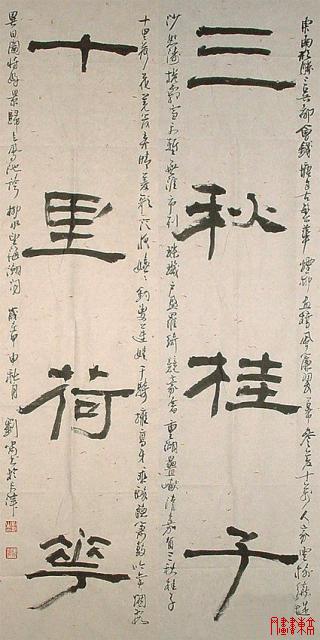 東南形勝三吳都會錢塘自古繁華煙柳画橋風簾翠幕參差十萬人家雲樹繞堤
三秋桂子
沙怒濤捲霜雪天塹無涯市列珠璣户盈羅綺競豪奢重湖叠巘清嘉有三秋桂子
十里荷花羌管弄晴菱歌泛夜嬉嬉釣叟蓮娃千騎擁高牙乘醉聽簫鼓吟賞烟霞
十里荷花
異日圖將好景歸去鳳池誇 柳永望海潮詞 秋月 劉 書於天津